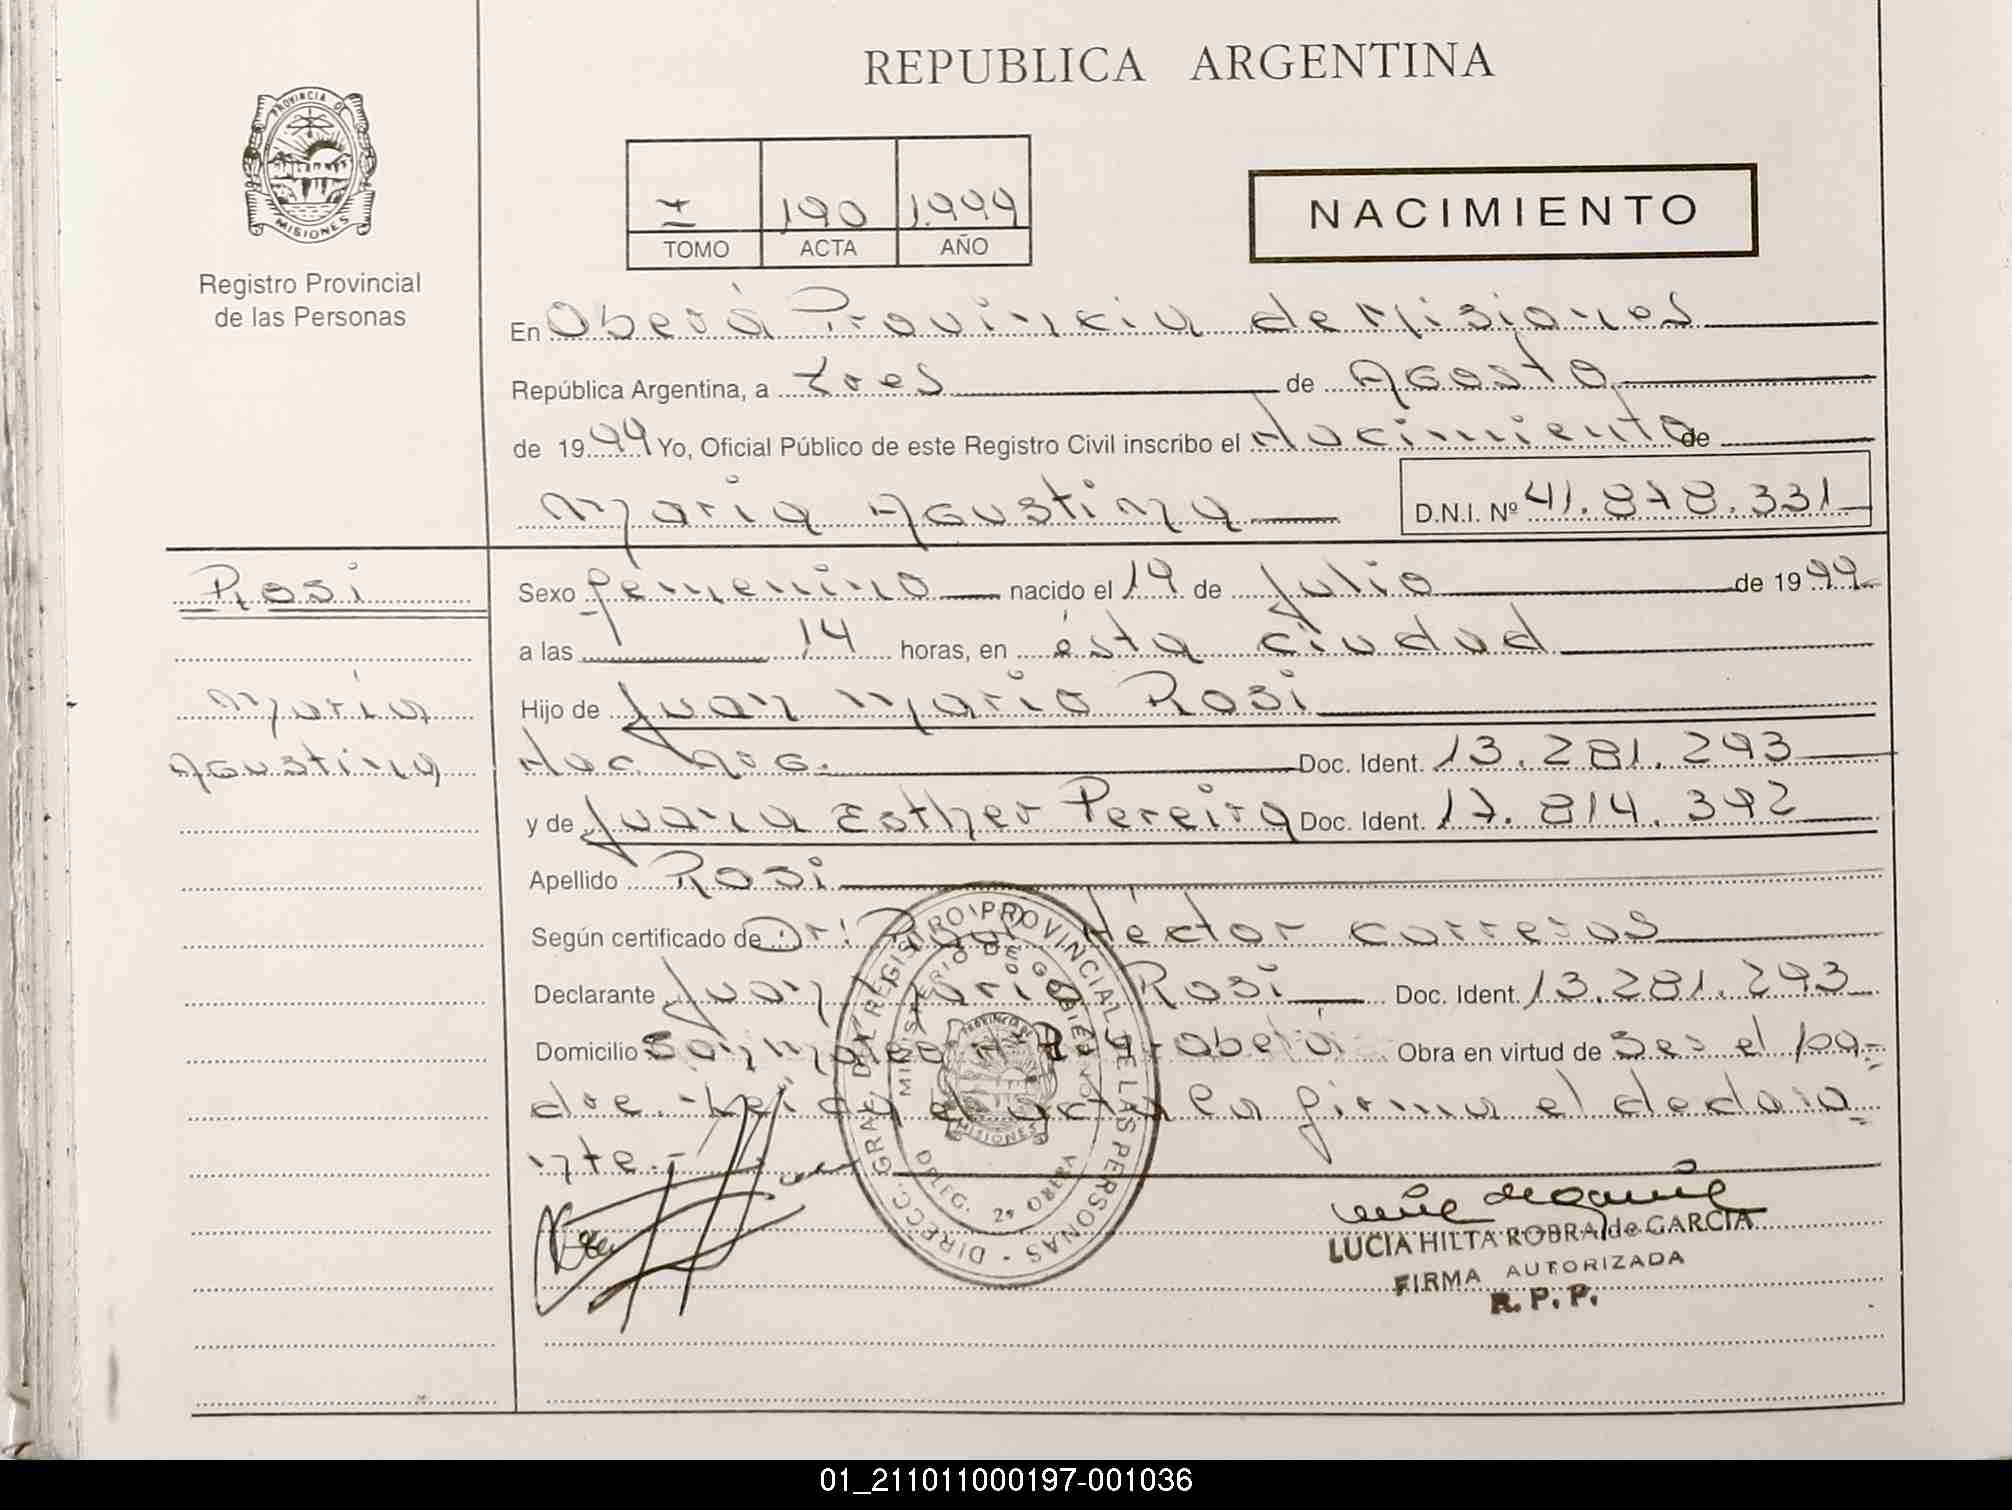 REPUBLICA ARGENTINA
PROVINCIA DE
MISIONES
Registro Provincial
de las Personas
I 190 1.999
TOMO ACTA AÑO
NACIMIENTO
En Oberá Provincia de Misiones
República Argentina, a tres de Agosto
de 1999 Yo, Oficial Público de este Registro Civil inscribo el Nacimiento de
Maria Agustina D.N.I. Nº 41.878.331
Rosi
Sexo femenino nacido el 19 de Julio de 1999
a las 14 horas, en ésta ciudad
Maria
Agustina
Hijo de Juan Mario Rosi
Nac. Arg. Doc. Ident. 13.281.293
y de Juana Esther Pereira Doc. Ident. 17.814.392
Apellido Rosi
Según certificado de Dr: Hector
Declarante Juan Mario Rosi Doc. Ident. 13.281.293
Domicilio Oberá Obra en virtud de ser el pa-
dre.- Leida el acta la firma el declara
nte.-
DIRECC. GRAL. DEL REGISTRO PROVINCIAL DE LAS PERSONAS -
MINISTERIO DE GOBIERNO
PROVINCIA DE
MISIONES
DELEG. 2ª OBERA
LUCIA HILTA ROBRA de GARCIA
FIRMA AUTORIZADA
R. P. P.
01_211011000197-001036